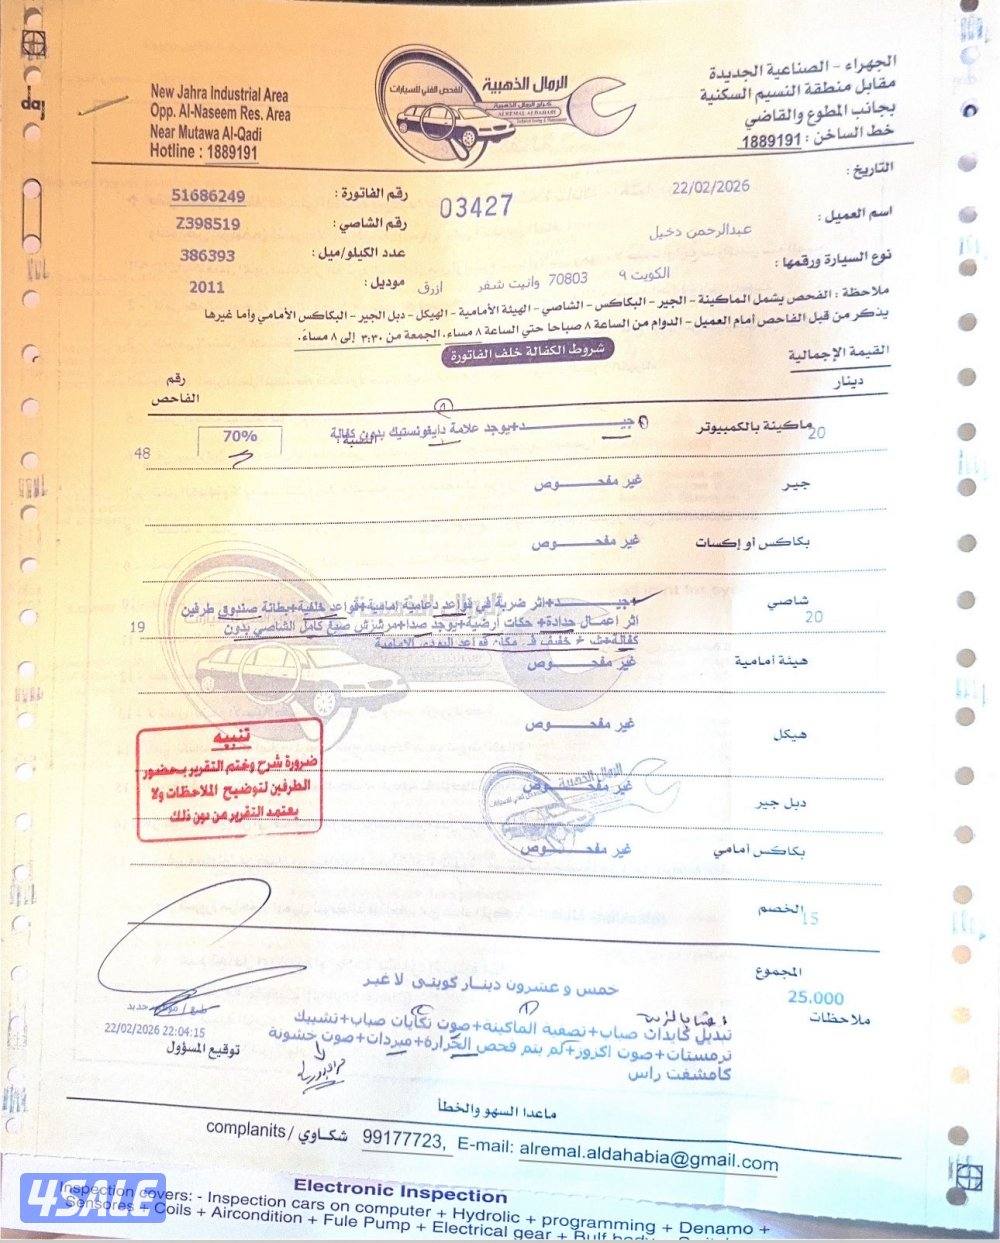 New Jahra Industrial Area
Opp. Al-Naseem Res. Area
Near Mutawa Al-Qadi
Hotline : 1889191
الرمال الذهبية
للفحص الفني للسيارات
كراج الرمال الذهبية
ALREMAL ALDAHABI
الجهراء - الصناعية الجديدة
مقابل منطقة النسيم السكنية
بجانب المطوع والقاضي
خط الساخن : 1889191
التاريخ : 22/02/2026
رقم الفاتورة : 51686249
03427
اسم العميل : عبدالرحمن دخيل
رقم الشاصي : Z398519
عدد الكيلو/ميل : 386393
نوع السيارة ورقمها : الكويت ٩ 70803 وانيت شفر ازرق
موديل : 2011
ملاحظة : الفحص يشمل الماكينة - الجير - البكاكس - الشاصي - الهيئة الأمامية - الهيكل - دبل الجير - البكاكس الأمامي وأما غيرها
يذكر من قبل الفاحص أمام العميل - الدوام من الساعة ٨ صباحا حتي الساعة ٨ مساء، الجمعة من ٣:٣٠ إلى ٨ مساءً.
شروط الكفالة خلف الفاتورة
القيمة الإجمالية
دينار
رقم
الفاحص
ماكينة بالكمبيوتر 20
جيـــد+يوجد علامة دايغونستيك بدون كفالة
النسبة : 70%
48
جير غير مفحـــوص
بكاكس أو إكسات غير مفحـــوص
شاصي 20
جيـــد+اثر ضربة في قواعد دعامية امامية+قواعد خلفية+بطانة صندوق طرفين
اثر اعمال حدادة+ حكات أرضية+يوجد صدا+مرشرش صبغ كامل الشاصي بدون
كفالة
19
هيئة أمامية غير مفحـــوص
هيكل غير مفحـــوص
دبل جير غير مفحـــوص
بكاكس أمامي غير مفحـــوص
تنبيه
ضرورة شرح وختم التقرير بحضور
الطرفين لتوضيح الملاحظات ولا
يعتمد التقرير من دون ذلك
الرمال الذهبية
الخصم 15
المجموع
25.000
خمس و عشرون دينـار كويتى لا غير
ملاحظات
تبديل كايدات صباب+تصفية الماكينة+صوت تكايات صباب+تشبيك
ترمستات+صوت اكزوز+لم يتم فحص الحرارة+مبردات+صوت خشونة
كامشفت راس
22/02/2026 22:04:15
توقيع المسؤول
ماعدا السهو والخطأ
complanits / شكـاوي 99177723, E-mail: alremal.aldahabia@gmail.com
Electronic Inspection
Inspection covers: - Inspection cars on computer + Hydrolic + programming + Denamo +
Sensores + Coils + Aircondition + Fule Pump + Electrical gear +
4SALE